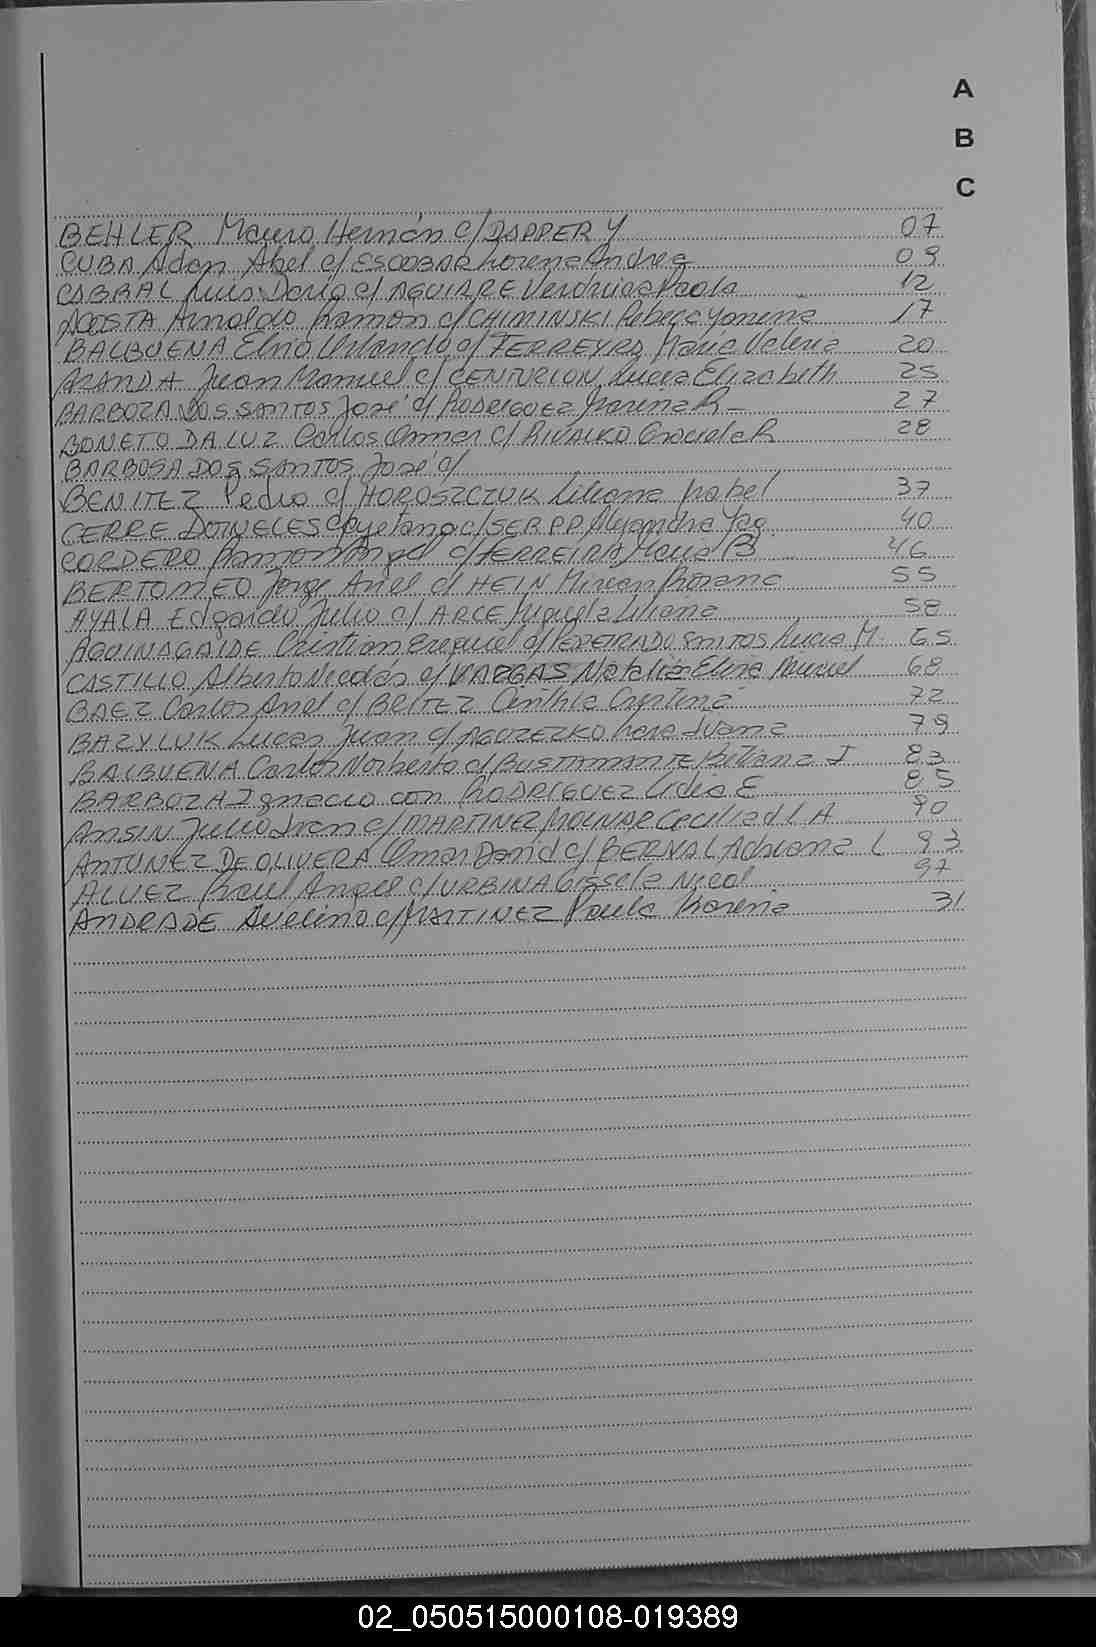 A
B
C
BEHLER Mauro Hernán c/ DAPPER Y 07
CUBA Adan Abel c/ ESCOBAR Lorena Andrea 09
CABRAL Luis Dario c/ AGUIRRE Verónica Paola 12
ACOSTA Arnaldo Ramón c/ CHIMINSKI Rebeca Yanina 17
BALBUENA Elno Orlando c/ FERREYRA Maria Valeria 20
ARANDA Juan Manuel c/ CENTURION Lucia Elizabeth 25
BARBOZA DOS SANTOS José c/ RODRIGUEZ Karina R 27
BONETO DA LUZ Carlos Omar c/ RIVALKO Graciela R 28
BARBOSA DOS SANTOS José c/
BENITEZ Pedro c/ HOROSZCZUK Liliana Isabel 37
CERRE DORNELES Cayetano c/ SERPP Alejandra 40
CORDERO Ramon Angel c/ FERREIRA Maria B 46
BERTOMEO Jorge Ariel c/ HEIN Mirian Roxana 55
AYALA Edgardo Julio c/ ARCE Miguela Liliana 58
AGUINAGALDE Cristian Ezequiel c/ PEREIRA DO SANTOS Lucia M. 65
CASTILLO Alberto Nicolás c/ VARGAS Natalia Elina Muriel 68
BAEZ Carlos Ariel c/ BRITEZ Cinthia Cristina 72
BAZYLUK Lucas Juan c/ Lara Juana 79
BALBUENA Carlos Norberto c/ BUSTAMANTE Bibiana J 83
BARBOZA Ignacio con RODRIGUEZ Lidia E 85
ANSIN Julio Ivan c/ MARTINEZ MOLNAR Cecilia d l A 90
ANTUNEZ DE OLIVERA Omar David c/ BERNAL Adriana L 93
ALVEZ Raul Angel c/ URBINA Gissela Nicol 97
ANDRADE Avelino c/ MARTINEZ Paula Karina 31
02_050515000108-019389